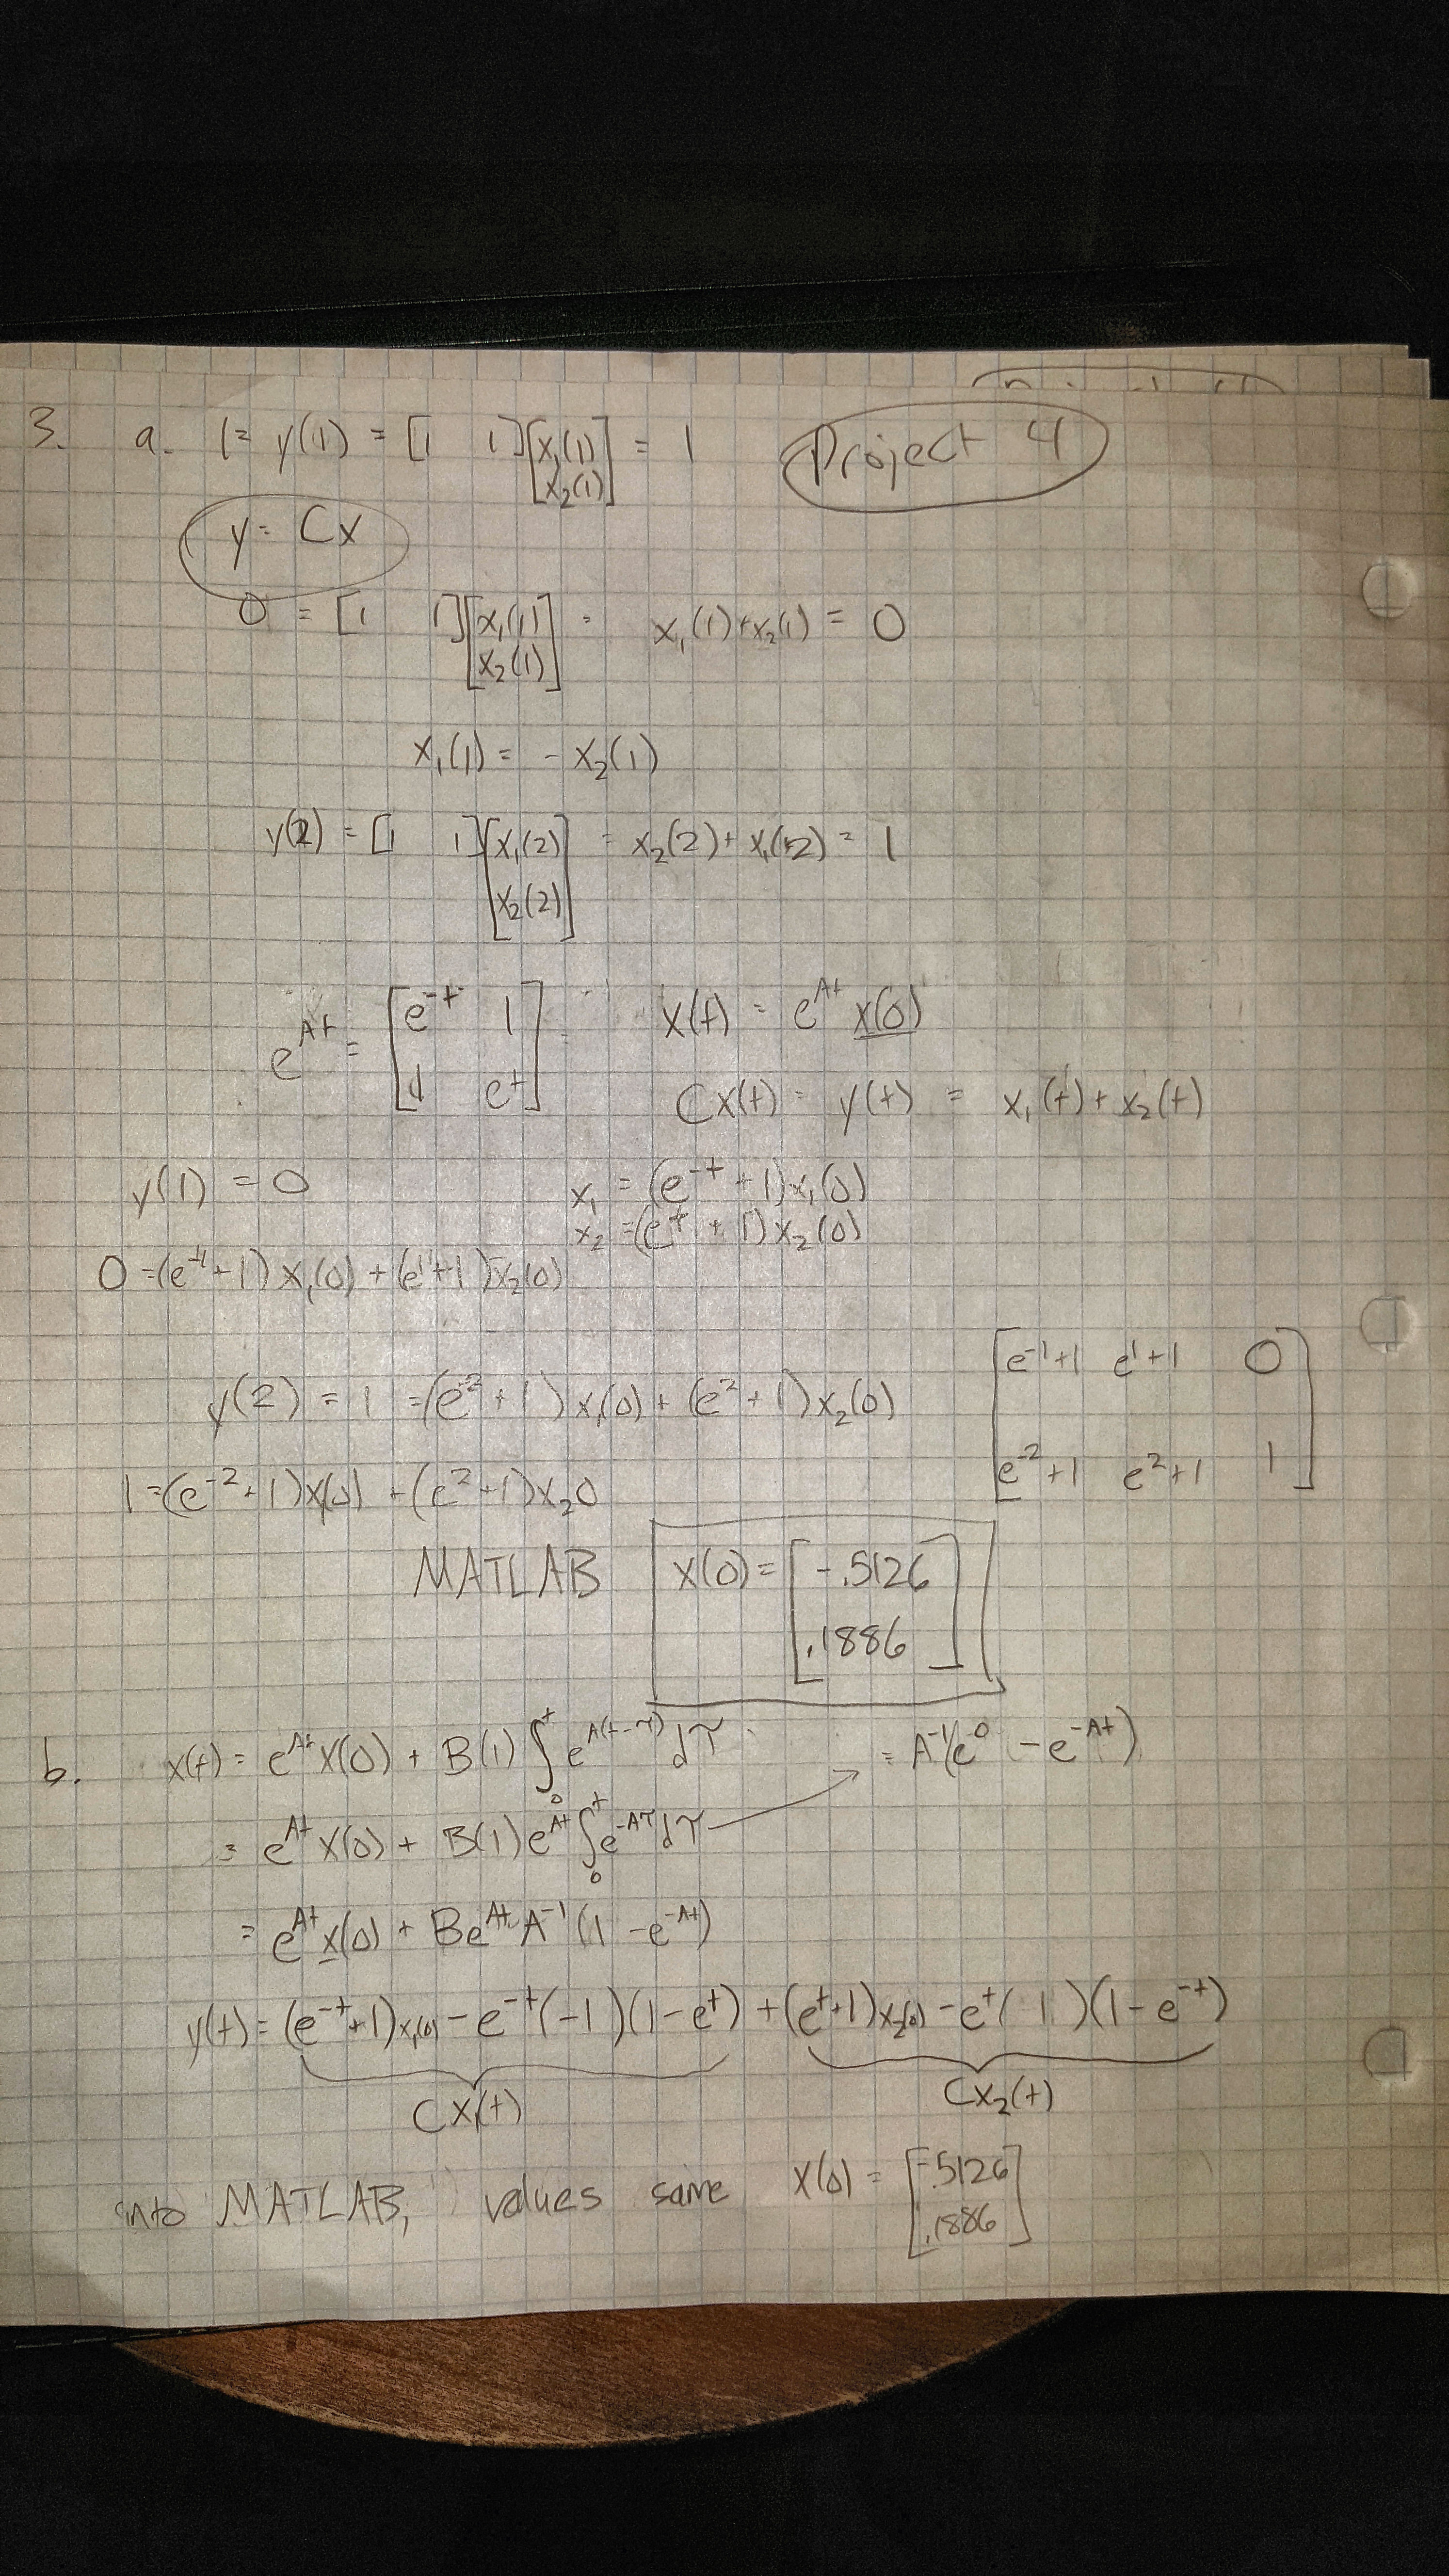 3. a. 1 = y(1) = [1 1][x₁(1) x₂(1)] = 1 Project 4
y = Cx
0 = [1 1][x₁(1) x₂(1)] = x₁(1)+x₂(1) = 0
x₁(1) = - x₂(1)
y(2) = [1 1][x₁(2) x₂(2)] = x₂(2) + x₁(2) = 1
e^At = [e^-t 1 1 e^t] x(t) = e^At x(0)
Cx(t) = y(t) = x₁(t) + x₂(t)
y(1) = 0 x₁ = (e^-t + 1) x₁(0)
x₂ = (e^t + 1) x₂(0)
0 = (e^-1 + 1) x₁(0) + (e^1 + 1) x₂(0)
y(2) = 1 = (e^-2 + 1) x₁(0) + (e^2 + 1) x₂(0) [e^-1+1 e^1+1 0
1 = (e^-2 + 1) x(0) + (e^2 + 1) x₂0 e^-2+1 e^2+1 1]
MATLAB x(0) = [-.5126 .1886]
b. x(t) = e^At x(0) + B(1) ∫₀^t e^A(t-τ) dτ
= e^At x(0) + B(1) e^At ∫₀^t e^-Aτ dτ → = A^-1(e^0 - e^-At)
= e^At x(0) + B e^At A^-1 (1 - e^-At)
y(t) = (e^-t+1) x₁(0) - e^-t(-1)(1 - e^t) + (e^t+1) x₂(0) - e^t(1)(1 - e^-t)
Cx(t) Cx₂(t)
into MATLAB, values same x(0) = [-.5126 .1886]